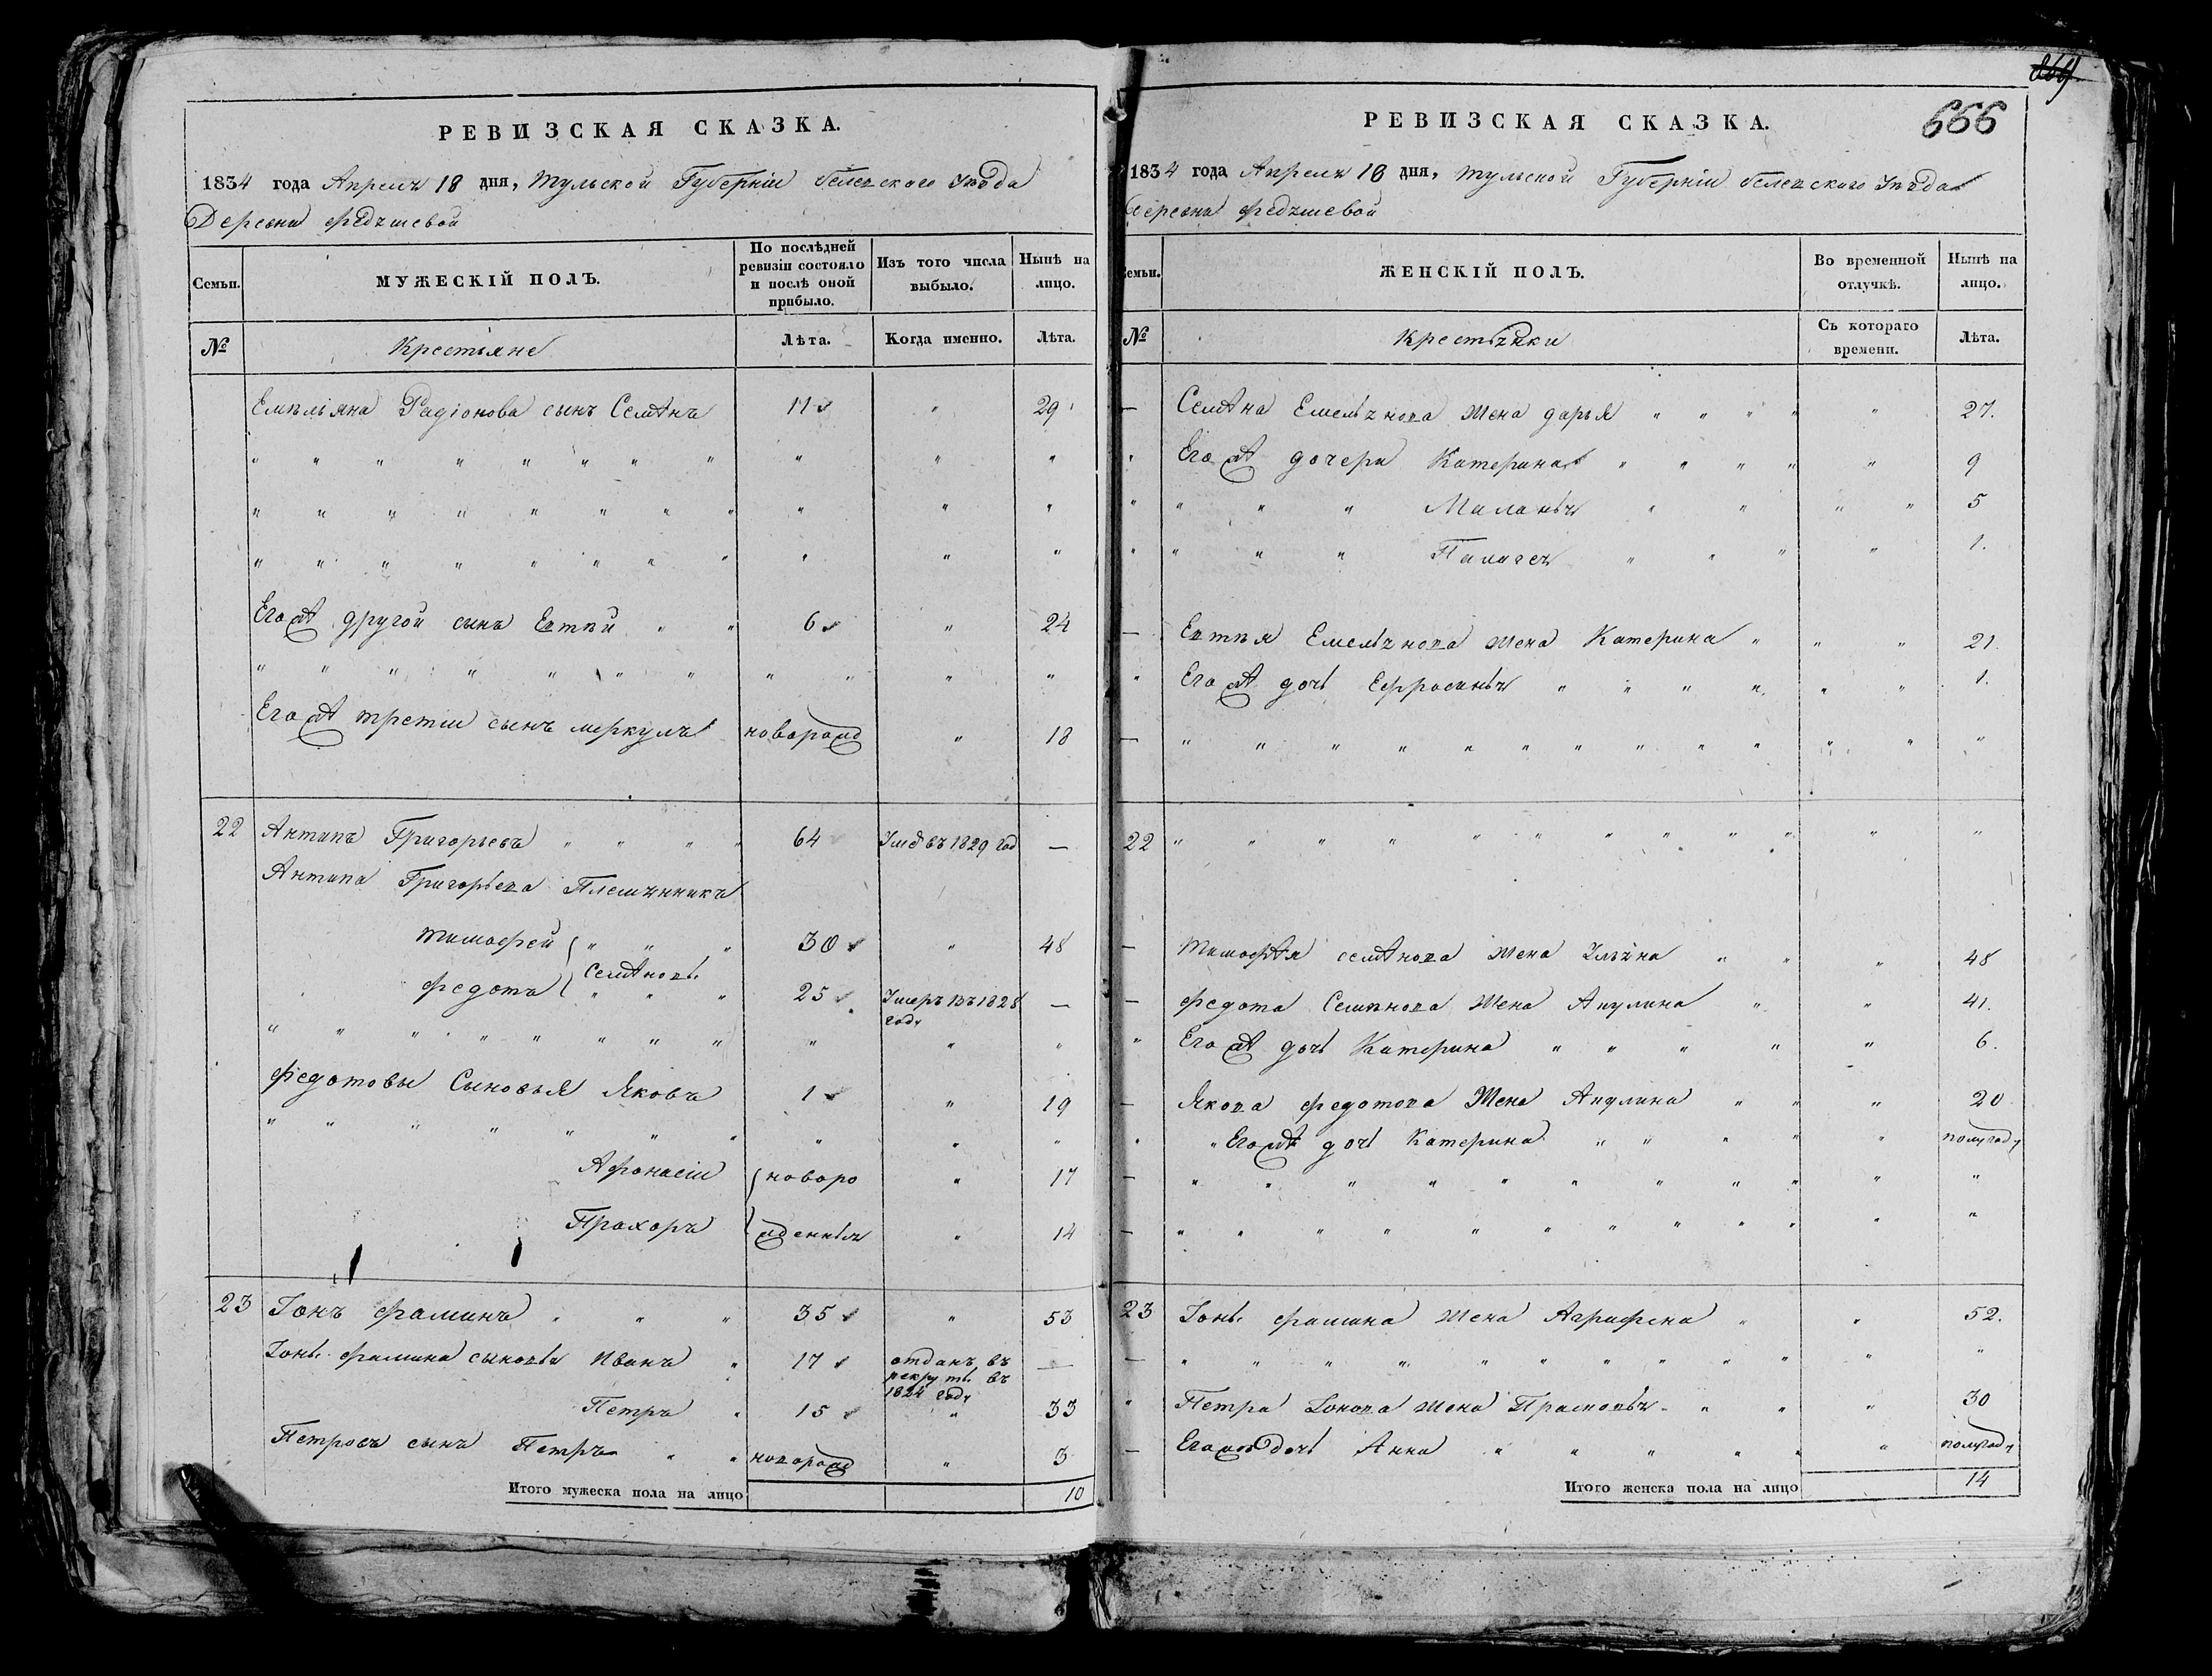 РЕВИЗСКАЯ СКАЗКА.
1834 года Апреля 18 дня, Тульской Губерніи белевского Уезда
Деревни Федяшевой
Семьи.
МУЖЕСКІЙ ПОЛЪ.
По послѣдней ревизіи состояло и послѣ оной прибыло.
Изъ того числа выбыло.
Нынѣ на лицо.
№
Крестьяне
Лѣта.
Когда именно.
Лѣта.
Емельяна Радіонова сынъ Семенъ 11 " 29
Его же другой сынъ Евтей " " 6 " 24
Его же третии сынъ меркулъ новорожд " 18
22 Антипъ Григорьевъ " " " " 64 Умеръ въ 1829 год —
Антипа Григорьева Племянники
тимофей " " " 30 " 48
Семеновы
федотъ " " " 25 Умеръ въ 1828 году —
федотовы Сыновья Яковъ 1 " 19
Афонасіи новоро " 17
Прохоръ жденныя " 14
23 Іонъ фаминъ " " " 35 " 53
Іоны фамина сыновья Иванъ " 17 отданъ въ рекруты въ 1824 году —
Петръ " 15 " 33
Петровъ сынъ Петръ " " новорожд " 3
Итого мужеска пола на лицо 10
666
РЕВИЗСКАЯ СКАЗКА.
1834 года Апреля 18 дня, тульской Губерніи белевского Уезда
деревни Федяшевой
Семьи.
ЖЕНСКІЙ ПОЛЪ.
Во временной отлучкѣ.
Нынѣ на лицо.
№
Крестьянки
Съ котораго времени.
Лѣта.
— Семена Емельянова жена дарья " " " " " 27.
" Его же дочери Катерина " " " " " 9
" " " " Маланья " " " " 5
" " " " Палагея " " " " 1.
— Евтея Емельянова жена Катерина " " " 21.
" Его же дочь Ефросинья " " " " " " 1.
22
— Тимофея семенова жена Ульяна " " " 48
— федота Семенова жена Акулина " " 41.
" Его же дочь Катерина " " " " " 6.
— Якова федотова Жена Акулина " " " 20
" " Его же дочь Катерина " " " " " полугоду
23 Іоны фамина жена Аграфена " " 52.
" Петра Іонова жена Прасковья " " " 30
— Его же дочь Анна " " " " " " полугоду
Итого женска пола на лицо 14